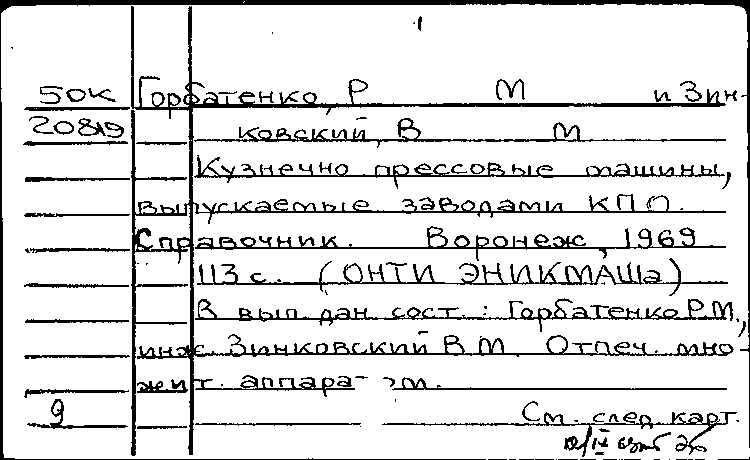 1
50К Горбатенко, Р М и Зин-
20819 ковский, В М
Кузнечно прессовые машины,
выпускаемые заводами КПО.
Справочник. Воронеж, 1969
113 с. (ОНТИ ЭНИКМАШа)
В вып. дан. сост.: Горбатенко Р.М.,
инж. Зинковский В.М. Отпеч. мно-
жит. аппара- ом.
9 См. след. карт.